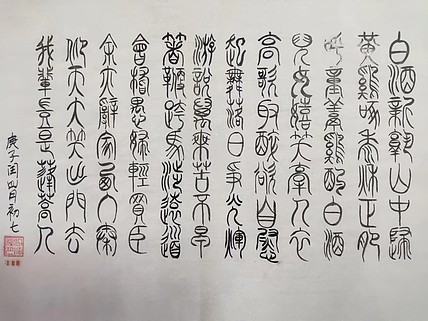 白酒新熟山中歸
黃鷄啄黍秌正肥
呼童烹鷄酌白酒
兒女嬉笑牽人衣
高歌取醉欲自慰
起舞落日爭光輝
游說萬乘苦不早
著鞭跨馬涉遠道
會稽愚婦輕買臣
余亦辭家西入秦
仰天大笑出門去
我輩豈是蓬蒿人
庚子闰四月初七